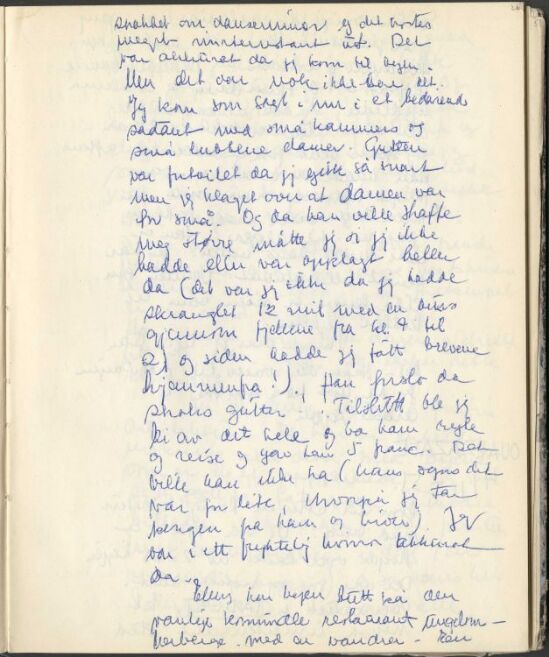 snakket om danserinner og det hørtes
meget uinteressant ut. Det
var da jeg kom til byen.
Men det var nok ikke bare det.
Jeg kom som sagt i inn i et bedårende
sådant med små kammers og
små lubbene damer. Gutten
var fortvilet da jeg gikk så snart
men jeg klaget over at damen var
for små. Og da han ville skaffe
meg større måtte jeg si jeg ikke
hadde eller var opplagt heller
da (det var jeg ikke da jeg hadde
skranglet 12 mil med en buss
gjennom fjellene fra kl. 4 til
og siden hadde jeg fått brevene
hjemmenfra!). Han foreslo da
gutter. Tilslutt ble jeg
lei av det hele og ba ham
og reise og gav han 5 franc. Det
ville han ikke ha (hans
var for lite, hvorpå jeg tar
pengene fra ham og ). Jeg
var i ett humør
da.
Ellers har byen bütt på den
vanlige restaurant
med en - han